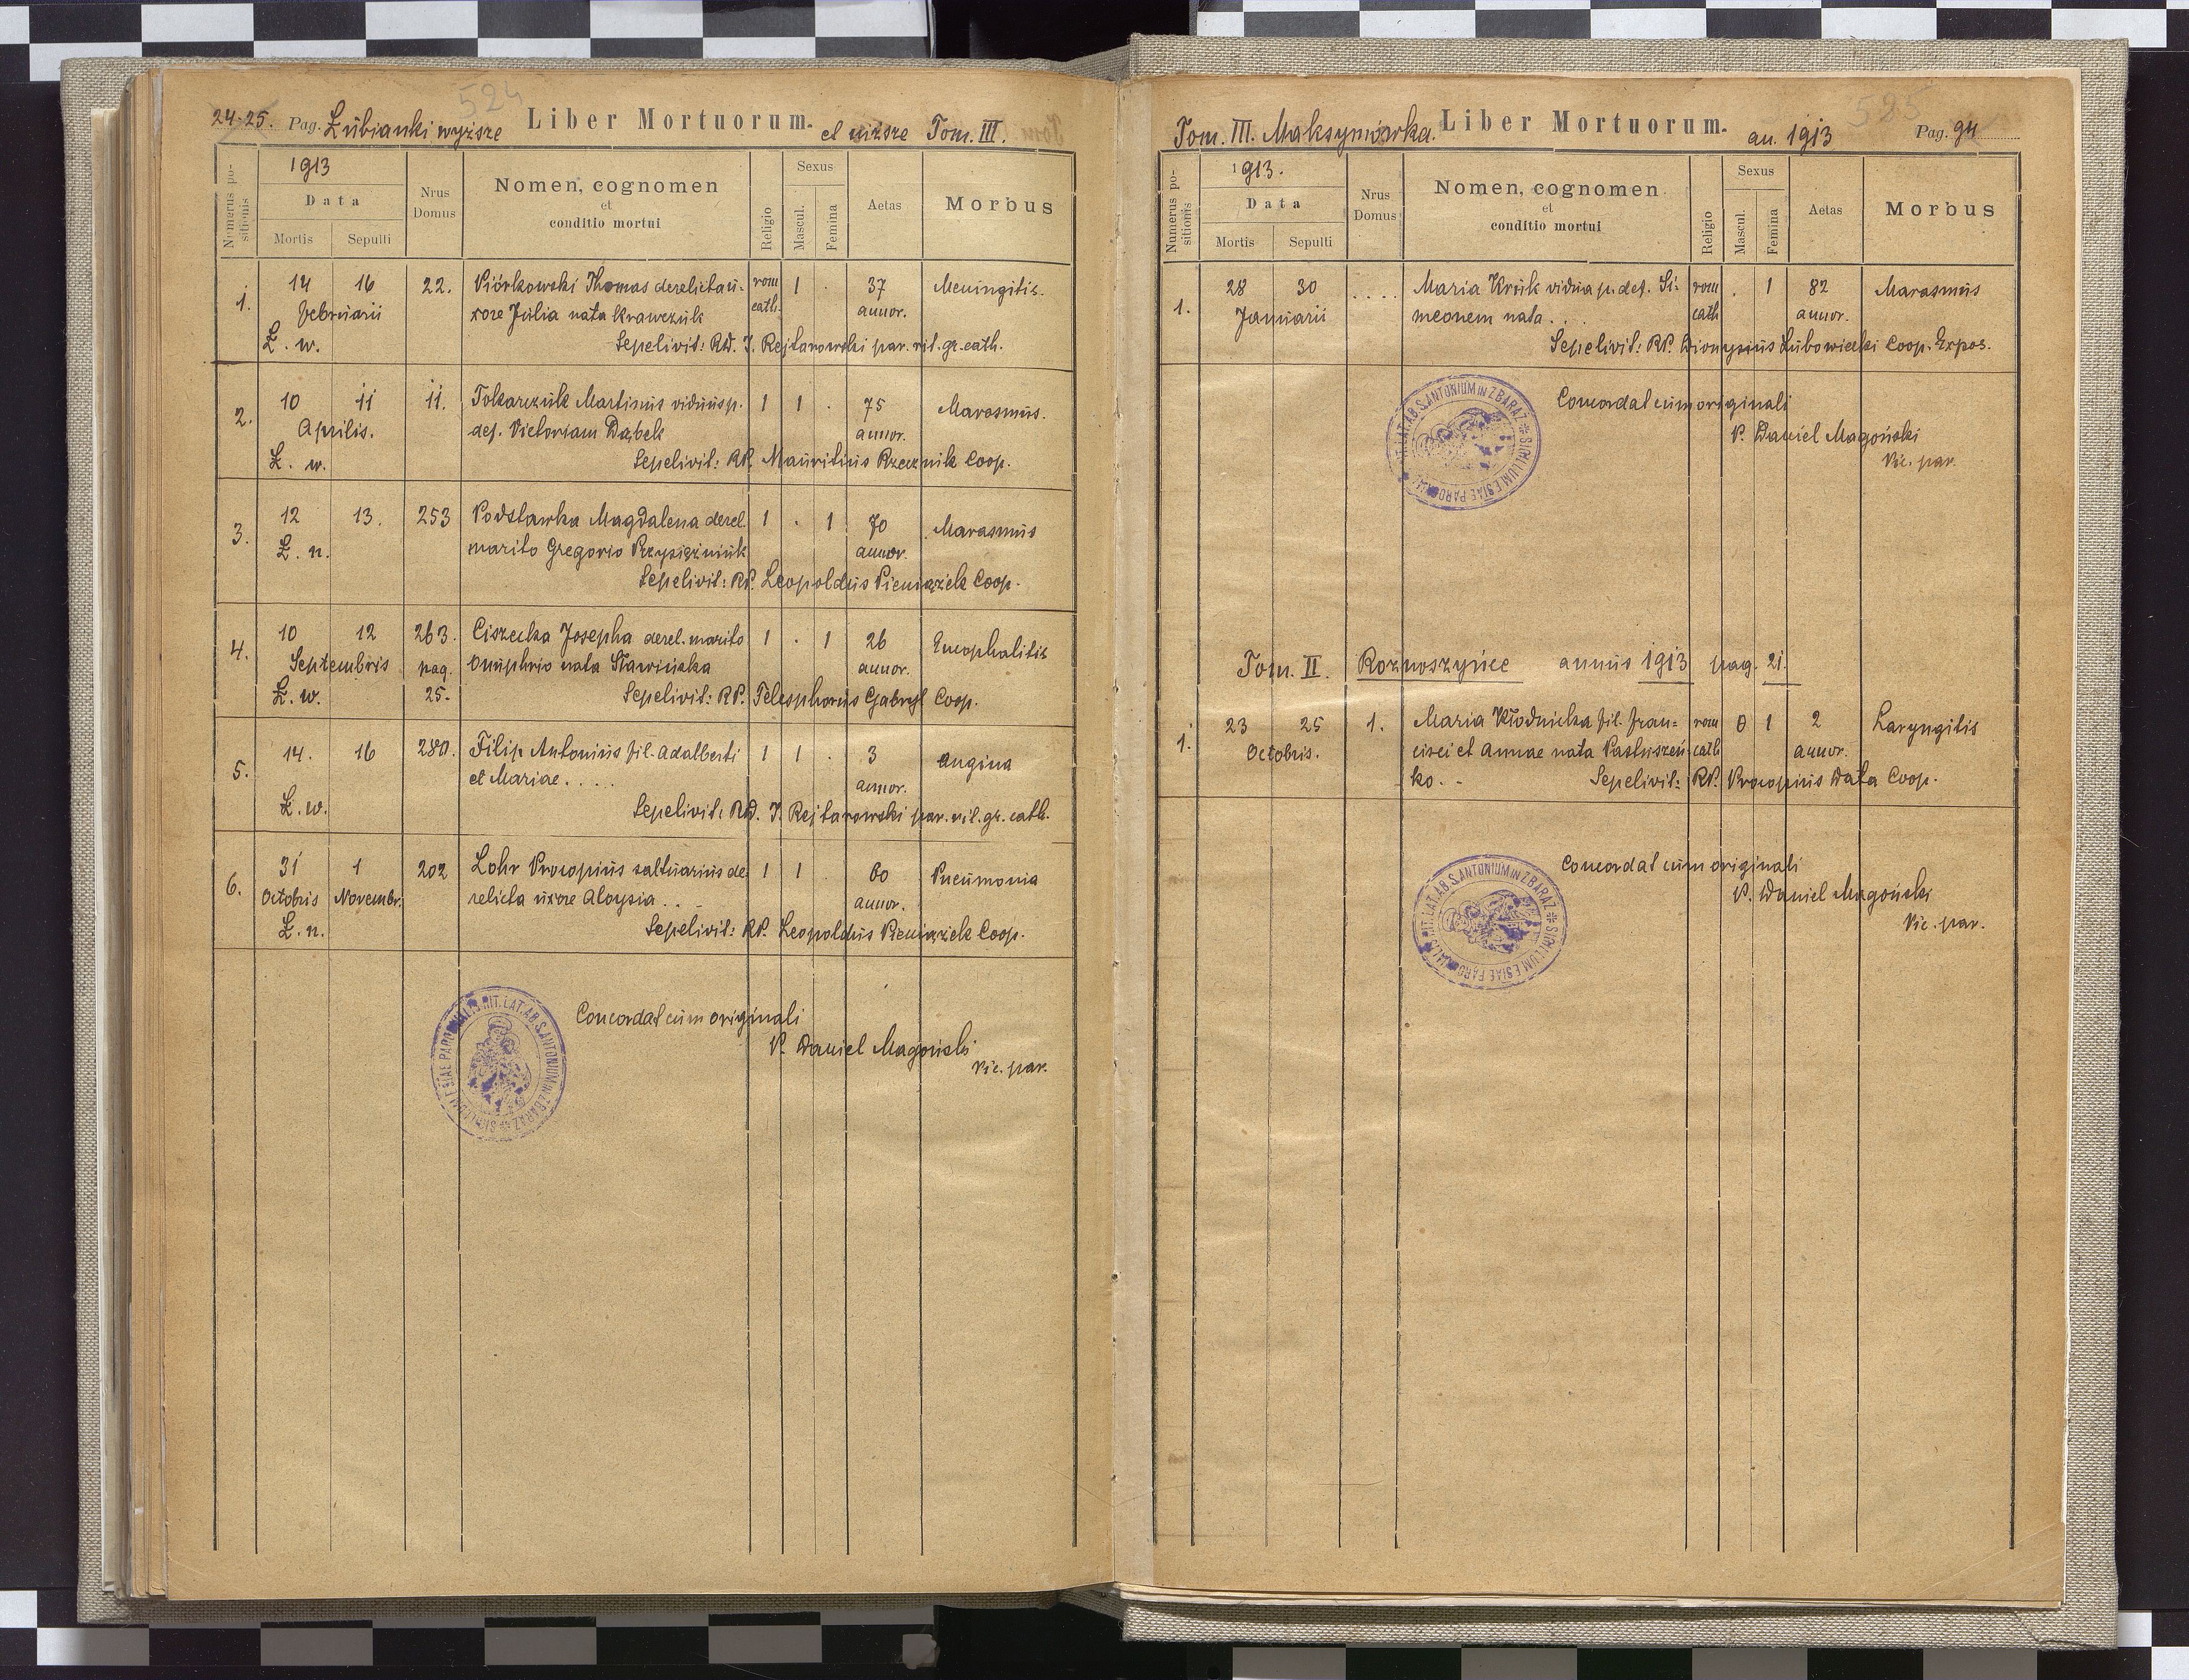 524
24-25. Pag. Łubianki wyższe Liber Mortuorum. et niższe Tom. III.
Numerus positionis
1913
Data
Mortis Sepulti
Nrus Domus
Nomen, cognomen
et
conditio mortui
Religio
Sexus
Mascul. Femina
Aetas
Morbus
1. 14 16 22. Piórkowski Thomas derelicta u- rom 1 . 37 Meningitis.
Februarii xore Julia nata Krawczuk cath. annor.
Ł. w. Sepelivit: RD. J. Rejtarowski par. rit. gr. cath.
2. 10 11 11. Tokarczuk Martinus viduus p. 1 1 . 75 Marasmus.
Aprilis. def. Victoriam Dąbek annor.
Ł. w. Sepelivit: RP. Mauritius Rzecznik Coop.
3. 12 13. 253 Podsławka Magdalena derel. 1 . 1 70 Marasmus
Ł. n. marito Gregorio Przysiężniuk annor.
Sepelivit: RP. Leopoldus Pieniążek Coop.
4. 10 12 263. Ciszecka Josepha derel. marito 1 . 1 26 Encephalitis
Septembris pag. Onuphrio nata Sławińska annor.
Ł. w. 25. Sepelivit: RP. Telesphorus Gabryl Coop.
5. 14. 16 280. Filip Antonius fil. Adalberti 1 1 . 3 angina
et Mariae. . . . . annor.
Ł. w. Sepelivit: RD. J. Rejtarowski par. rit. gr. cath.
6. 31 1 202 Lohr Procopius saltuarius de- 1 1 . 60 Pneumonia
Octobris Novembr. relicta uxore Aloysia . . - annor.
Ł. n. Sepelivit: RP. Leopoldus Pieniążek Coop.
Concordat cum originali
P. Daniel Magoński
Vic. par.
525
Tom. III. Maksymówka. Liber Mortuorum. an. 1913 Pag. 94
Numerus positionis
1913.
Data
Mortis Sepulti
Nrus Domus
Nomen, cognomen
et
conditio mortui
Religio
Sexus
Mascul. Femina
Aetas
Morbus
1. 28 30 . . . . Maria Kruk vidua p. def. Si- rom . 1 82 Marasmus
Januarii meonem nata . . . cath annor.
Sepelivit: RP. Dionysius Lubowiecki Coop. Expos.
Concordat cum originali
P. Daniel Magoński
Vic. par.
Tom. II. Roznoszyńce annus 1913 pag. 21.
1. 23 25 1. Maria Kłodnicka fil. Fran- rom 0 1 2 Laryngitis
Octobris. cisci et Annae nata Pastuszeń- cath annor.
ko. - Sepelivit: RP. Procopius Data Coop.
Concordat cum originali
P. Daniel Magoński
Vic. par.